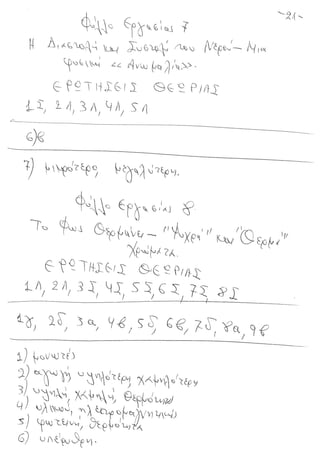 -21-
Φύλλο Εργασίας 7
Η Διαστολή και Συστολή του Νερού - Μια
φυσική «Ανωμαλία».
ΕΡΩΤΗΣΕΙΣ ΘΕΩΡΙΑΣ
1Σ, 2Λ, 3Λ, 4Λ, 5Λ
6)β
7) μικρότερο, μεγαλύτερη.
Φύλλο Εργασίας 8
Το Φως Θερμαίνει - "Ψυχρά" και "Θερμά"
Χρώματα.
ΕΡΩΤΗΣΕΙΣ ΘΕΩΡΙΑΣ
1Λ, 2Λ, 3Σ, 4Σ, 5Σ, 6Σ, 7Σ, 8Σ
1γ, 2δ, 3α, 4β, 5δ, 6β, 7δ, 8α, 9β
1) μονωτές
2) αγωγή υψηλότερη, χαμηλότερη
3) υψηλή, χαμηλή, θερμότητα
4) υλικού, ηλεκτρομαγνητικής
5) φωτεινή, θερμότητα
6) υπέρυθρη.